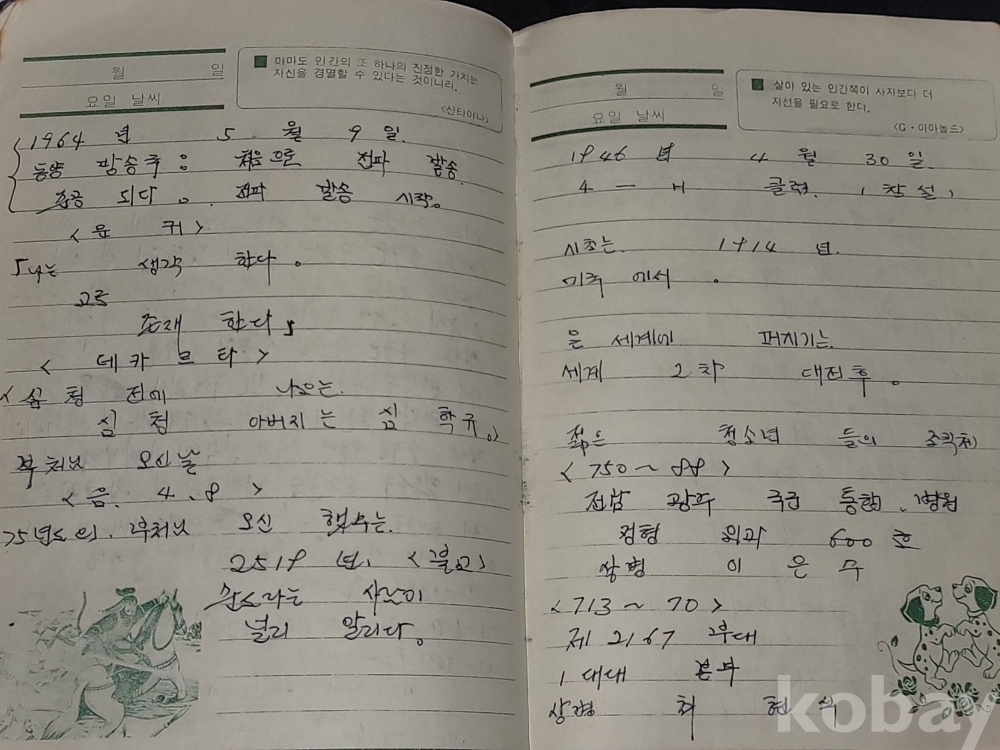 월 일
요일 날씨
아마도 인간의 또 하나의 진정한 가치는
자신을 경멸할 수 있다는 것이니라.
<산타이나>
1964 년 5 월 9 일.
동양 방송국 : 처음으로 전파 발송
성공 되다. 전파 발송 시작.
「나는 생각 한다.
고로
존재 한다」
< 데 카 르 타 >
<심 청 전에 나오는.
심 청 아버지는 심 학규.>
부처님 오신날
<음. 4. 8 >
75년도의. 부처님 오신 햇수는.
2519 년. <불교>
널리 알리다.
월 일
요일 날씨
살아 있는 인간쪽이 사자보다 더
자선을 필요로 한다.
<G·아아놀드>
1946 년 4 월 30 일.
4 - H 클럽. (창 설)
시초는. 1914 년.
미국 에서 .
은 세계에 퍼지기는.
세계 2 차 대전 후 .
젊은 청소년 들의 조직체
<750~88>
전남 광주 국군 통합. 병원
정형 외과 600 호
상병 이 은
<713~70>
제 2167 부대
1 대대 본부
상병 최 현
kobay